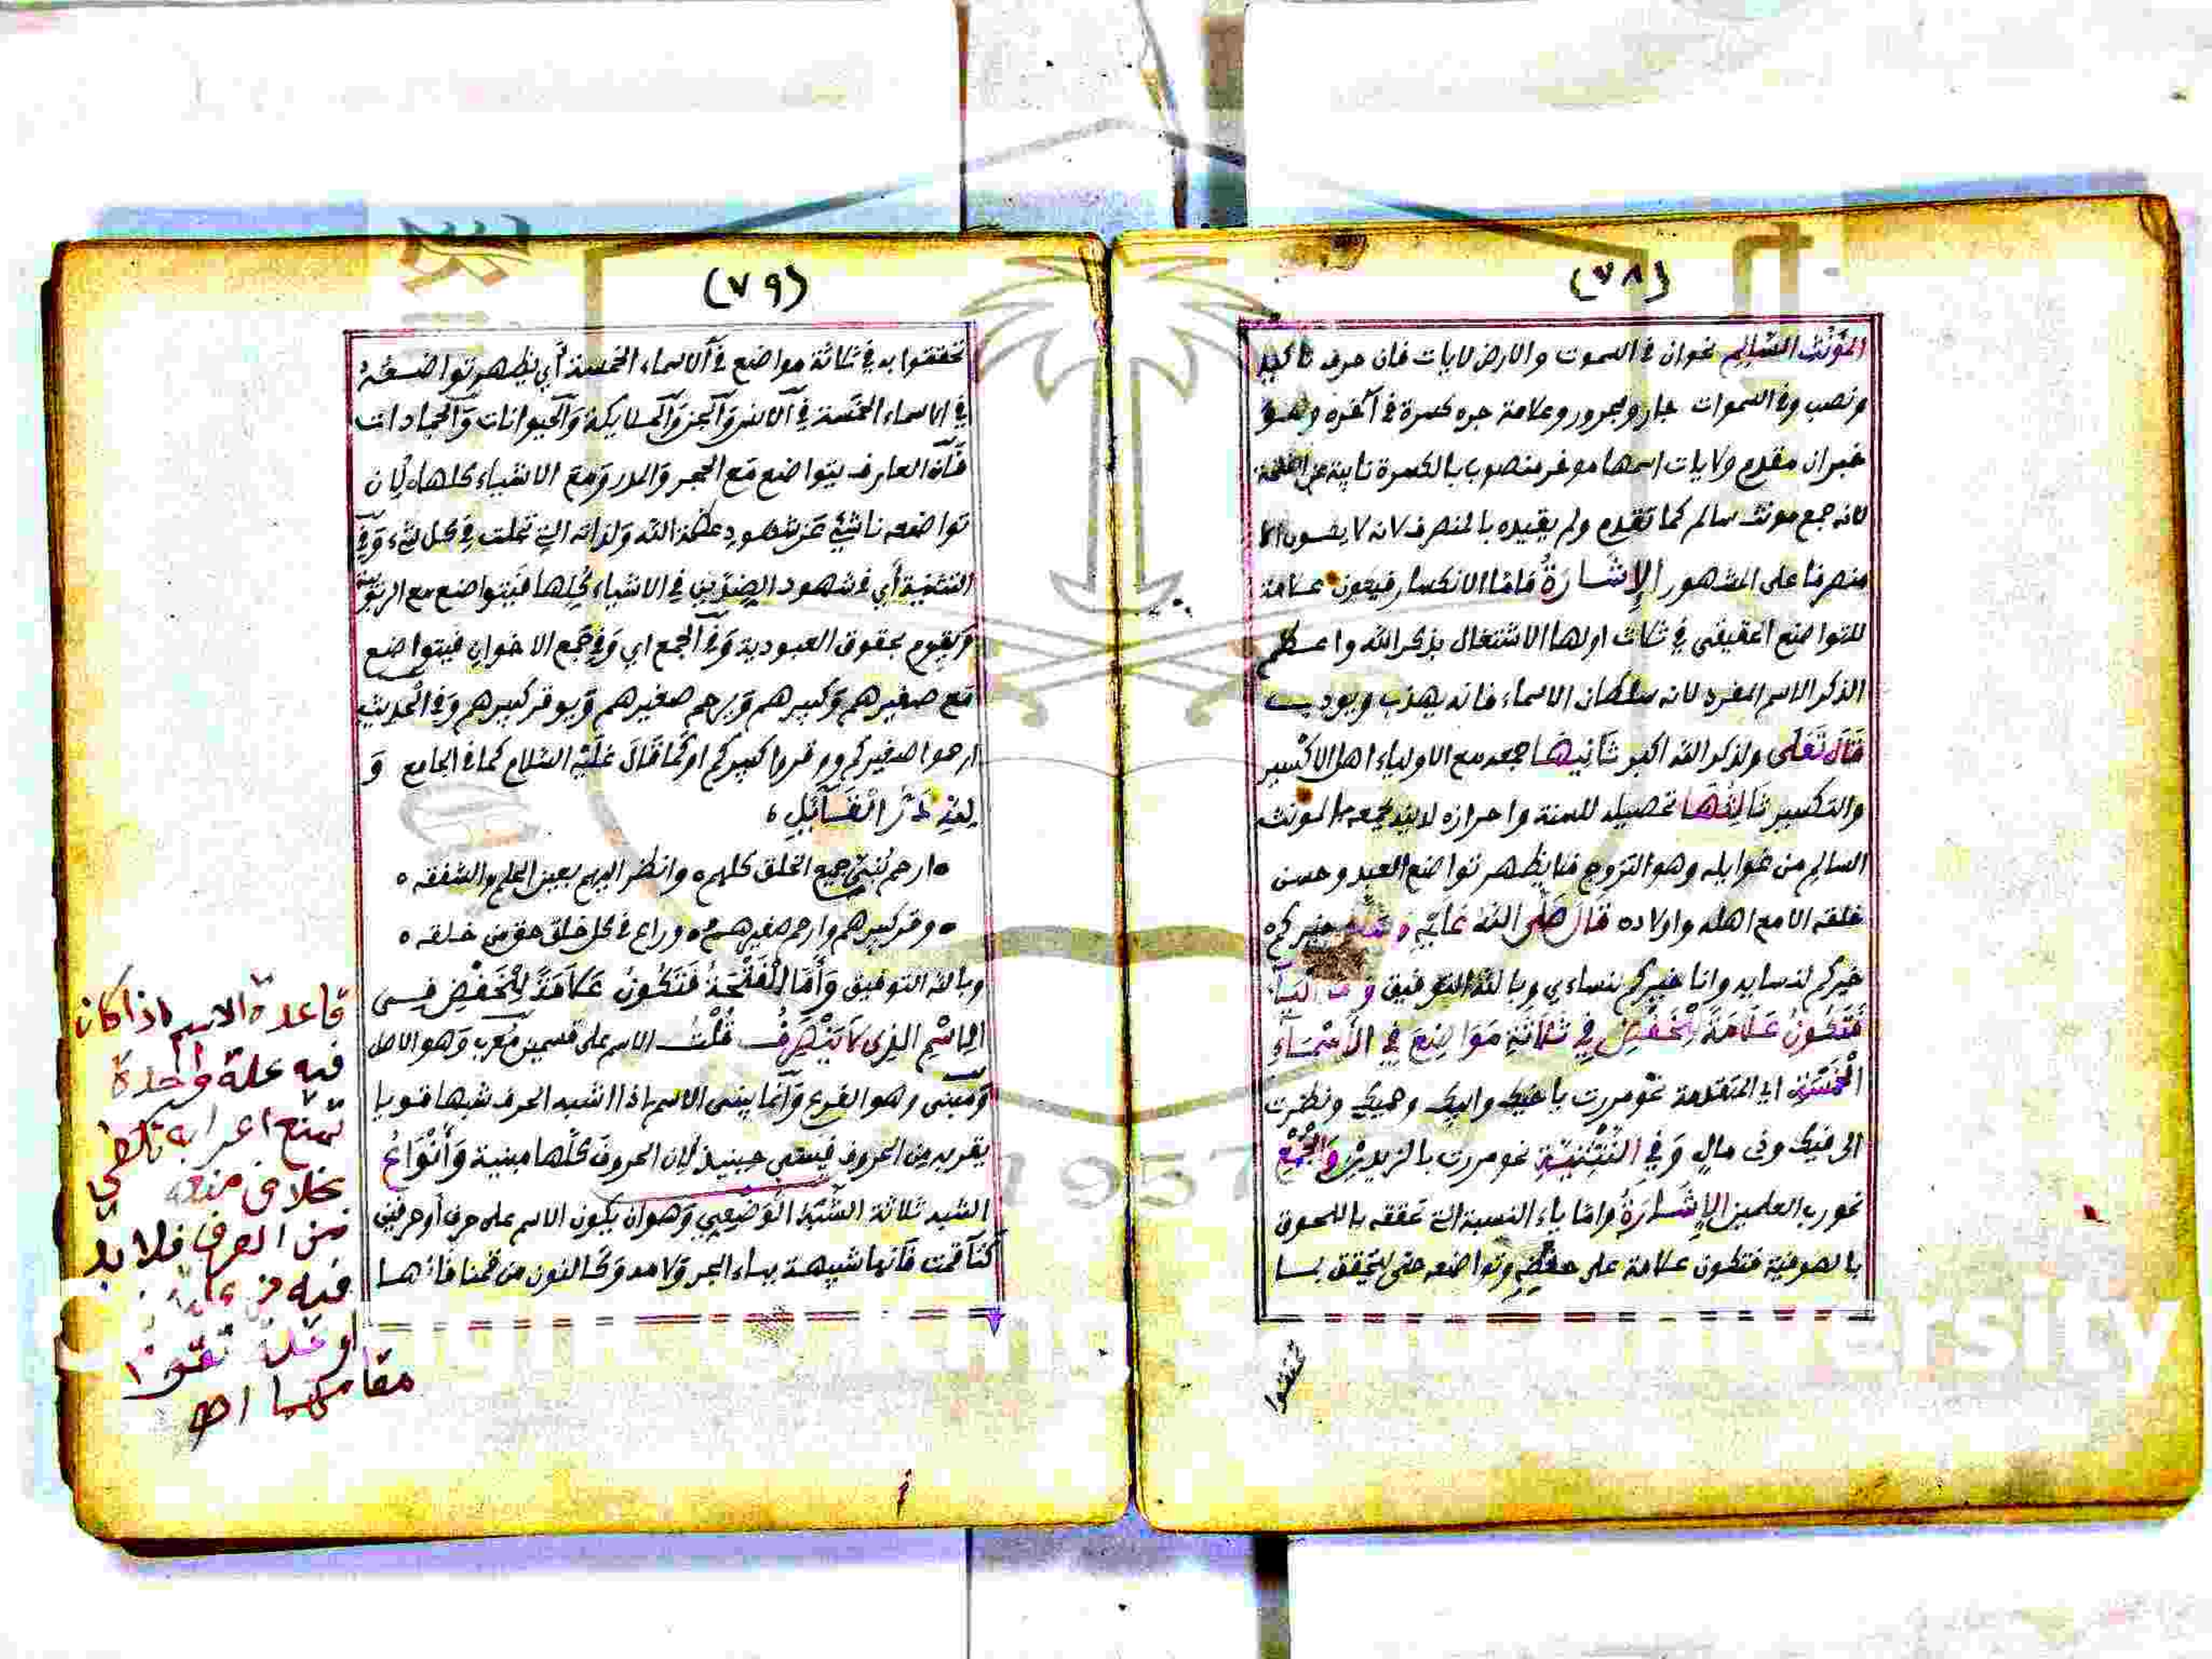 (٧٨)
المؤنث السالم نحو ان في السموت والارض لايات فان حرف تاكيد
ونصب وفي السموات جار ومجرور وعلامة جره كسرة في آخره وهو
خبران مقدم ولايات اسمها موخر منصوب بالكسرة نايبة عن الفتحة
لانه جمع مونث سالم كما تقدم ولم يقيده بالمنصرف لانه لا يكون الا
منصرفا على المشهور الإشارة فاما الانكسار فيكون علامة
للتواضع الحقيقي في ثلاث اولها الاشتغال بذكر الله واعظم
الذكر الاسم المفرد لانه سلطان الاسماء فانه يهذب ويودب
قال تعلى ولذكر الله اكبر ثانيها جمعه مع الاولياء اهل الاكسير
والتكسير ثالثها تحصيله للسنة واحرازه لدينه بجمعه بالمونث
السالم من غوايله وهو التزوج فما يظهر تواضع العبد وحسن
خلقه الا مع اهله واولاده قال صلى الله عليه وسلم خيركم
خيركم لنسايه وانا خيركم لنساءي وبالله التوفيق وأما الياء
فتكون علامة للخفض في ثلاثة مواضع في الأسماء
الخمسة اي المتقدمة نحو مررت باخيك وابيك وحميك ونظرت
الى فيك وذي مال وفي التثنية نحو مررت بالزيدين والجمع
نحو رب العلمين الإشارة واما ياء النسبة التي تحققه باللحوق
بالصوفية فتكون علامة على خفضه وتواضعه حتى يتحقق بما
تحققوا
(٧٩)
تحققوا به في ثلاثة مواضع في الاسماء الخمسة أي يظهر تواضعه
في الاسماء الخمسة في الانس والجن والملايكة والحيوانات والجمادات
فان العارف يتواضع مع الحجر والمدر ومع الاشياء كلها لان
تواضعه ناشئ عن شهود عظمة الله ولذاته التي تجلت في كل شيء وفي
التثنية أي في شهود الضدين في الاشياء كلها فيتواضع مع الربوبية
ويقوم بحقوق العبودية وفي الجمع اي وفي جمع الاخوان فيتواضع
مع صغيرهم وكبيرهم ويرحم صغيرهم ويوقر كبيرهم وفي الحديث
ارحموا صغيركم ووقروا كبيركم او كما قال عليه السلام كما في الجامع و
لله در القايل
ارحم بني جميع الخلق كلهم وانظر اليهم بعين الحلم والشفقه
وقر كبيرهم وارحم صغيرهم وراع في كل خلق حق من خلقه
وبالله التوفيق وأما الفتحة فتكون علامة للخفض في
الاسم الذي لا ينصرف قلت الاسم على قسمين معرب وهو الاصل
ومبني وهو الفرع وانما يبنى الاسم اذا اشبه الحرف شبها قويا
يقربه من الحروف فيبنى حينيذ لان الحروف كلها مبنية وأنواع
الشبه ثلاثة الشبه الوضعي وهو ان يكون الاسم على حرف أو حرفين
كتا قمت فانها شبيهة بباء الجر ولامه وكالنون من قمنا فانها
قاعدة الاسم اذا كان
فيه علة واحدة
تمنع اعرابه
بخلاف منعه
من الصرف فلا بد
فيه من
او علة تقوم
مقامهما اه